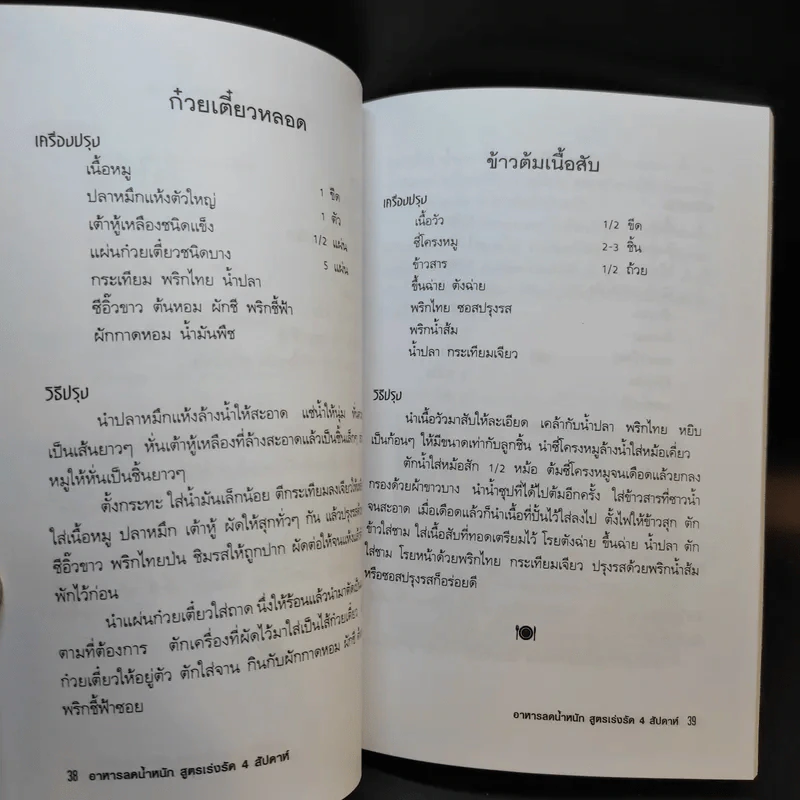 ก๋วยเตี๋ยวหลอด
เครื่องปรุง
เนื้อหมู 1 ขีด
ปลาหมึกแห้งตัวใหญ่ 1 ตัว
เต้าหู้เหลืองชนิดแข็ง 1/2 แผ่น
แผ่นก๋วยเตี๋ยวชนิดบาง 5 แผ่น
กระเทียม พริกไทย น้ำปลา
ซีอิ๊วขาว ต้นหอม ผักชี พริกชี้ฟ้า
ผักกาดหอม น้ำมันพืช
วิธีปรุง
นำปลาหมึกแห้งล้างน้ำให้สะอาด แช่น้ำให้นุ่ม
เป็นเส้นยาวๆ หั่นเต้าหู้เหลืองที่ล้างสะอาดแล้วเป็นชิ้นเล็กๆ
หมูให้หั่นเป็นชิ้นยาวๆ
ตั้งกระทะ ใส่น้ำมันเล็กน้อย ตีกระเทียมลงเจียวให้
ใส่เนื้อหมู ปลาหมึก เต้าหู้ ผัดให้สุกทั่วๆ กัน แล้วปรุงรส
ซีอิ๊วขาว พริกไทยป่น ชิมรสให้ถูกปาก ผัดต่อให้จนแห้ง
พักไว้ก่อน
นำแผ่นก๋วยเตี๋ยวใส่ถาด นึ่งให้ร้อนแล้วนำมาตัด
ตามที่ต้องการ ตักเครื่องที่ผัดไว้มาใส่เป็นไส้ก๋วยเตี๋ยว
ก๋วยเตี๋ยวให้อยู่ตัว ตักใส่จาน กินกับผักกาดหอม ผักชี
พริกชี้ฟ้าซอย
38 อาหารลดน้ำหนัก สูตรเร่งรัด 4 สัปดาห์
ข้าวต้มเนื้อสับ
เครื่องปรุง
เนื้อวัว 1/2 ขีด
ซี่โครงหมู 2-3 ชิ้น
ข้าวสาร 1/2 ถ้วย
ขึ้นฉ่าย ตังฉ่าย
พริกไทย ซอสปรุงรส
พริกน้ำส้ม
น้ำปลา กระเทียมเจียว
วิธีปรุง
นำเนื้อวัวมาสับให้ละเอียด เคล้ากับน้ำปลา พริกไทย หยิบ
เป็นก้อนๆ ให้มีขนาดเท่ากับลูกชิ้น นำซี่โครงหมูล้างน้ำใส่หม้อเคี่ยว
ตักน้ำใส่หม้อสัก 1/2 หม้อ ต้มซี่โครงหมูจนเดือดแล้วยกลง
กรองด้วยผ้าขาวบาง นำน้ำซุปที่ได้ไปต้มอีกครั้ง ใส่ข้าวสารที่ซาวน้ำ
จนสะอาด เมื่อเดือดแล้วก็นำเนื้อที่ปั้นไว้ใส่ลงไป ตั้งไฟให้ข้าวสุก ตัก
ข้าวใส่ชาม ใส่เนื้อสับที่ทอดเตรียมไว้ โรยตังฉ่าย ขึ้นฉ่าย น้ำปลา ตัก
ใส่ชาม โรยหน้าด้วยพริกไทย กระเทียมเจียว ปรุงรสด้วยพริกน้ำส้ม
หรือซอสปรุงรสก็อร่อยดี
อาหารลดน้ำหนัก สูตรเร่งรัด 4 สัปดาห์ 39